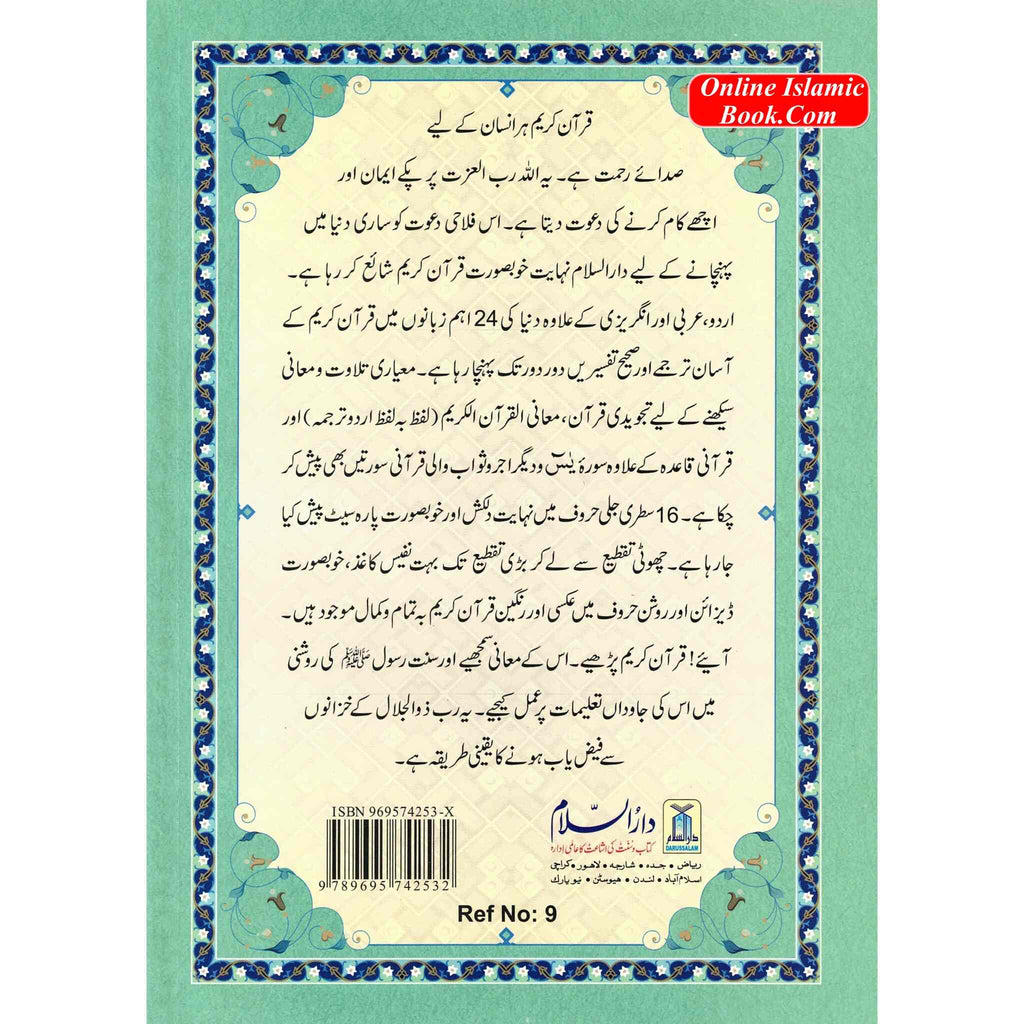 Online Islamic
Book.Com
قرآن کریم ہر انسان کے لیے
صدائے رحمت ہے۔ یہ اللہ رب العزت پر پکے ایمان اور
اچھے کام کرنے کی دعوت دیتا ہے۔ اس فلاحی دعوت کو ساری دنیا میں
پہنچانے کے لیے دارالسلام نہایت خوبصورت قرآن کریم شائع کر رہا ہے۔
اردو، عربی اور انگریزی کے علاوہ دنیا کی 24 اہم زبانوں میں قرآن کریم کے
آسان ترجمے اور صحیح تفسیریں دور دور تک پہنچا رہا ہے۔ معیاری تلاوت و معانی
سیکھنے کے لیے تجویدی قرآن، معانی القرآن الکریم (لفظ بہ لفظ اردو ترجمہ) اور
قرآنی قاعدہ کے علاوہ سورۂ یٰسٓ و دیگر اجر و ثواب والی قرآنی سورتیں بھی پیش کر
چکا ہے۔ 16 سطری جلی حروف میں نہایت دلکش اور خوبصورت پارہ سیٹ پیش کیا
جا رہا ہے۔ چھوٹی تقطیع سے لے کر بڑی تقطیع تک بہت نفیس کاغذ، خوبصورت
ڈیزائن اور روشن حروف میں عکسی اور رنگین قرآن کریم بہ تمام و کمال موجود ہیں۔
آیئے! قرآن کریم پڑھیے۔ اس کے معانی سمجھیے اور سنت رسول ﷺ کی روشنی
میں اس کی جاوداں تعلیمات پر عمل کیجیے۔ یہ رب ذوالجلال کے خزانوں
سے فیض یاب ہونے کا یقینی طریقہ ہے۔
دارالسلام
DARUSSALAM
دارُالسّلام
کتاب و سنت کی اشاعت کا عالمی ادارہ
ریاض • جدہ • شارجہ • لاہور • کراچی
اسلام آباد • لندن • ہیوسٹن • نیو یارک
ISBN 969574253-X
9 789695 742532
Ref No: 9